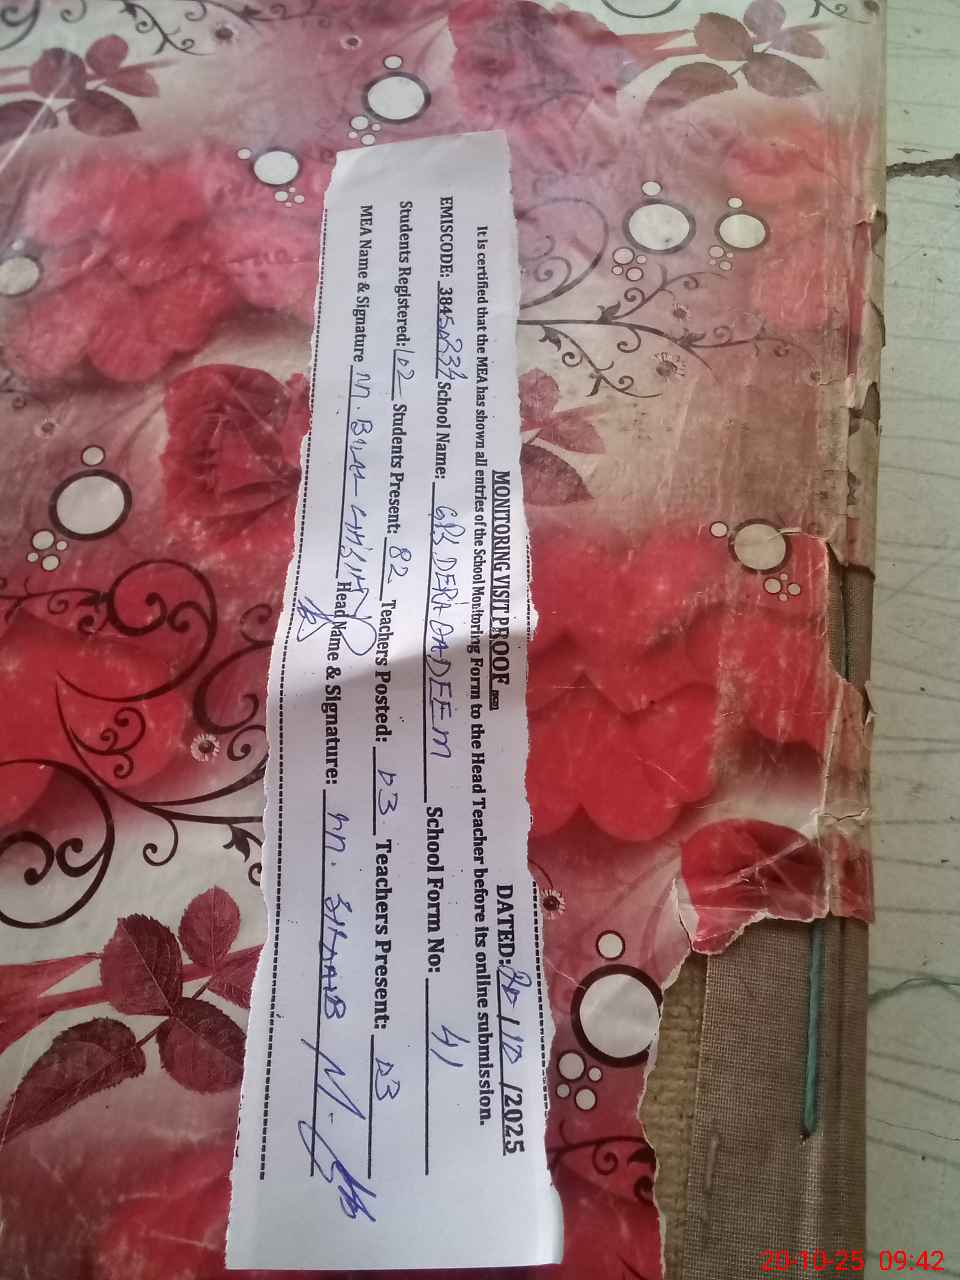 MONITORING VISIT PROOF DATED: 20/10/2025
It is certified that the MEA has shown all entries of the School Monitoring Form to the Head Teacher before its online submission.
EMISCODE: 384 School Name: GPS DERA OADEEM School Form No: 41
Students Registered: 102 Students Present: 82 Teachers Posted: 03 Teachers Present: 03
MEA Name & Signature M. Head Name & Signature: M.
20-10-25 09:42